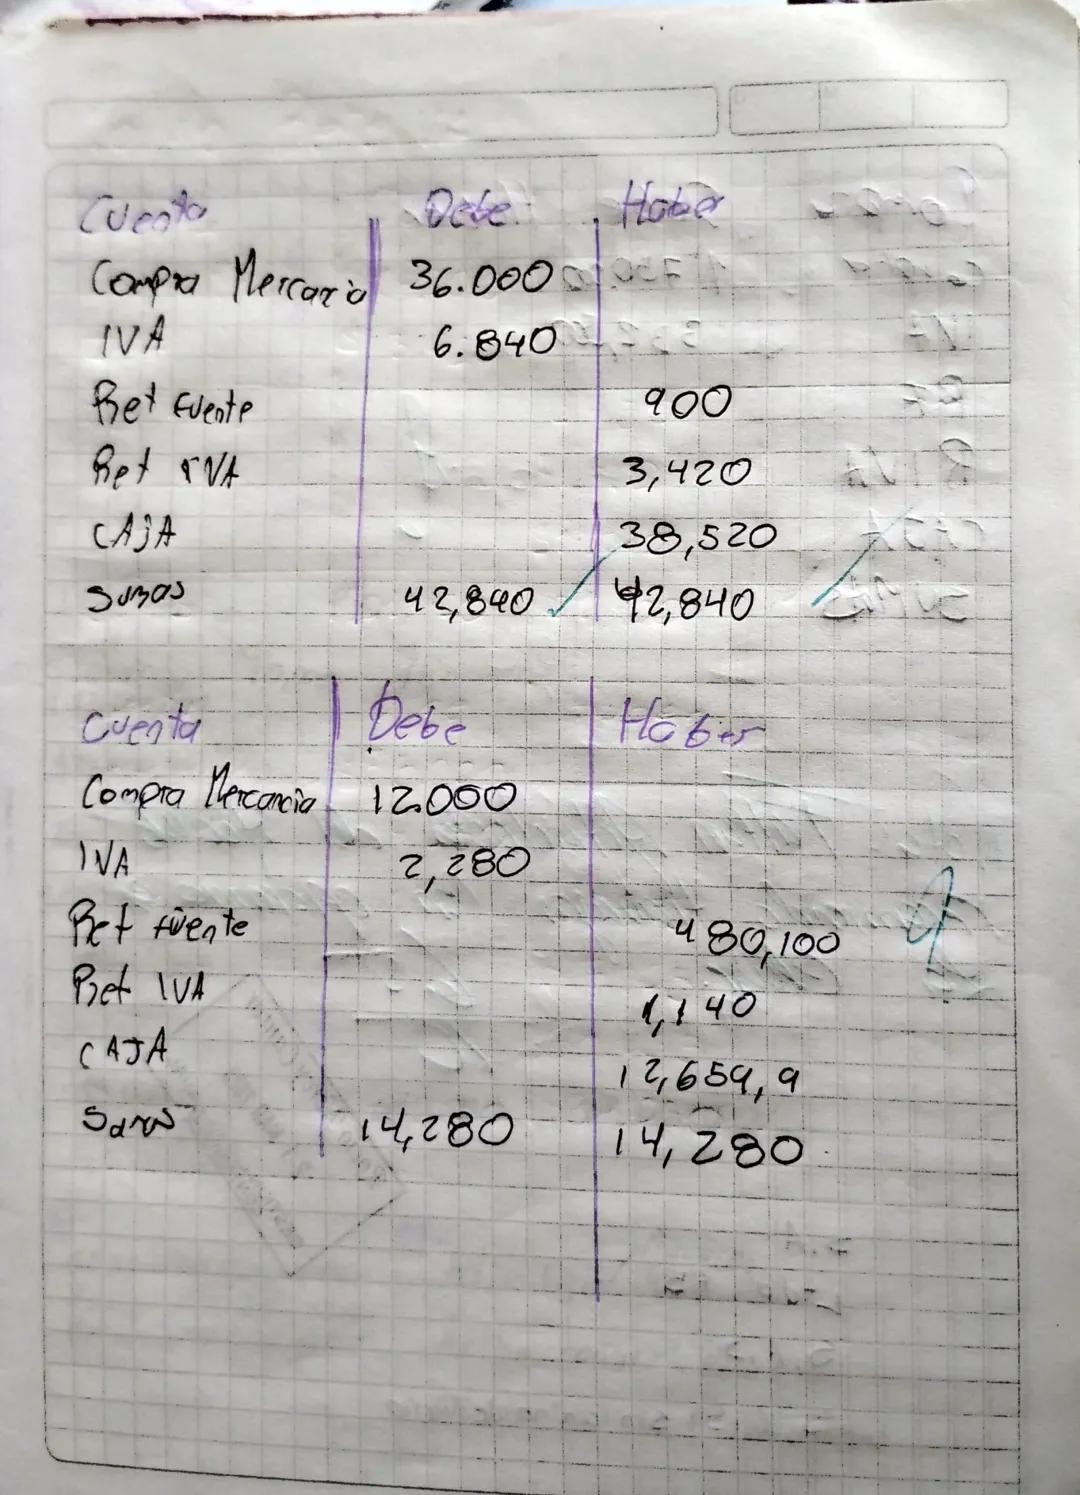 Cuenta Debe Haber
Compra Mercancia 36.000
IVA 6.840
Ret Fuente 900
Ret IVA 3,420
CAJA 38,520
Sumas 42,840 42,840
Cuenta Debe Haber
Compra Mercancia 12.000
IVA 2,280
Ret fuente 480,100
Ret IVA 1,140
CAJA 12,659,9
Sumas 14,280 14,280